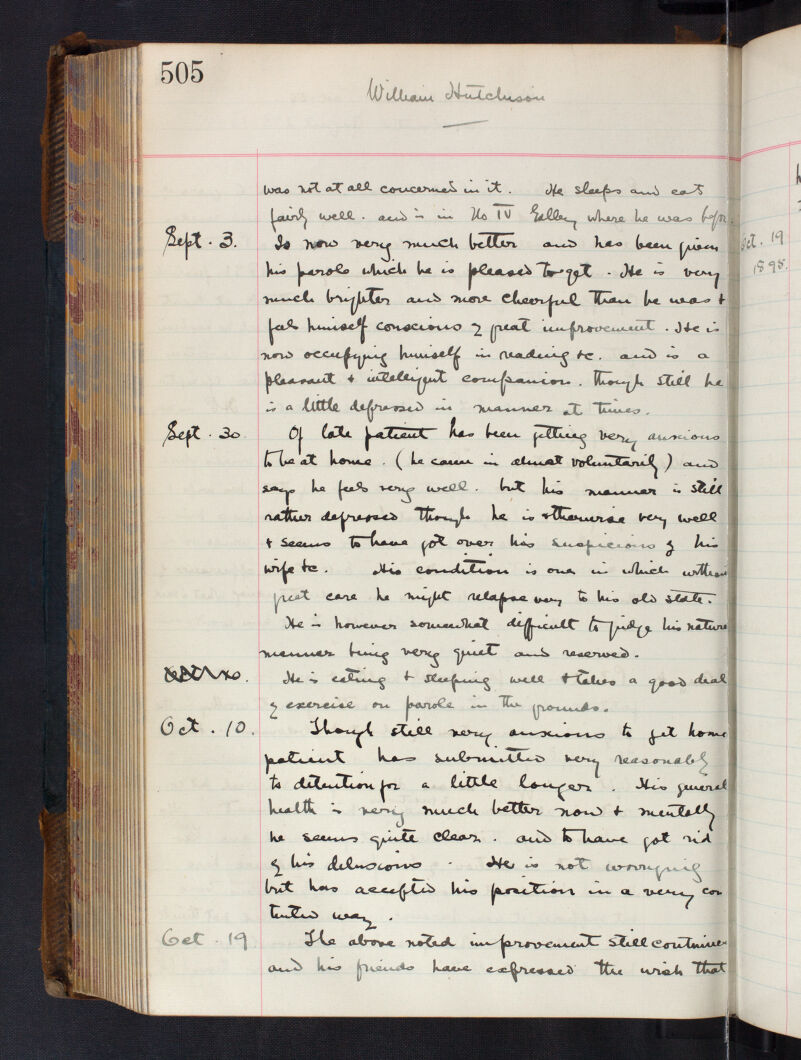 505
William Hutchison
was not at all concerned in it. He sleeps and eats
fairly well. and is in No IV Gallery where he was before.
Sept. 3. Is now very much better and has been given
his parole which he is pleased to get. He is very
much brighter and more cheerful than he was +
feels himself conscious of great improvement. He is
now occupying himself in reading &c. and is a
pleasant + intelligent companion. though still he
is a little depressed in manner at times.
Sept. 30. Of late patient has been getting very anxious
to be at home. (he came in almost voluntarily) and
says he feels very well. but his manner is still
rather depressed though he is otherwise very well
+ seems to have got over his suspicions of his
wife &c. His condition is one in which without
great care he might relapse to his old state.
He is however somewhat difficult to judge his nature
manner being very quiet and reserved.
He is eating + sleeping well + takes a good deal
of exercise on parole in the grounds.
Oct. 10. Though still very anxious to get home
patient has submitted very reasonably
to detention for a little longer. His general
health is very much better now + mentally
he seems quite clear. and to have got rid
of his delusions. He is not worrying
but has accepted his position in a very con
tented way.
Oct. 19 The above noted improvement still continues
and his friends have expressed the wish that
Oct. 19
1898.